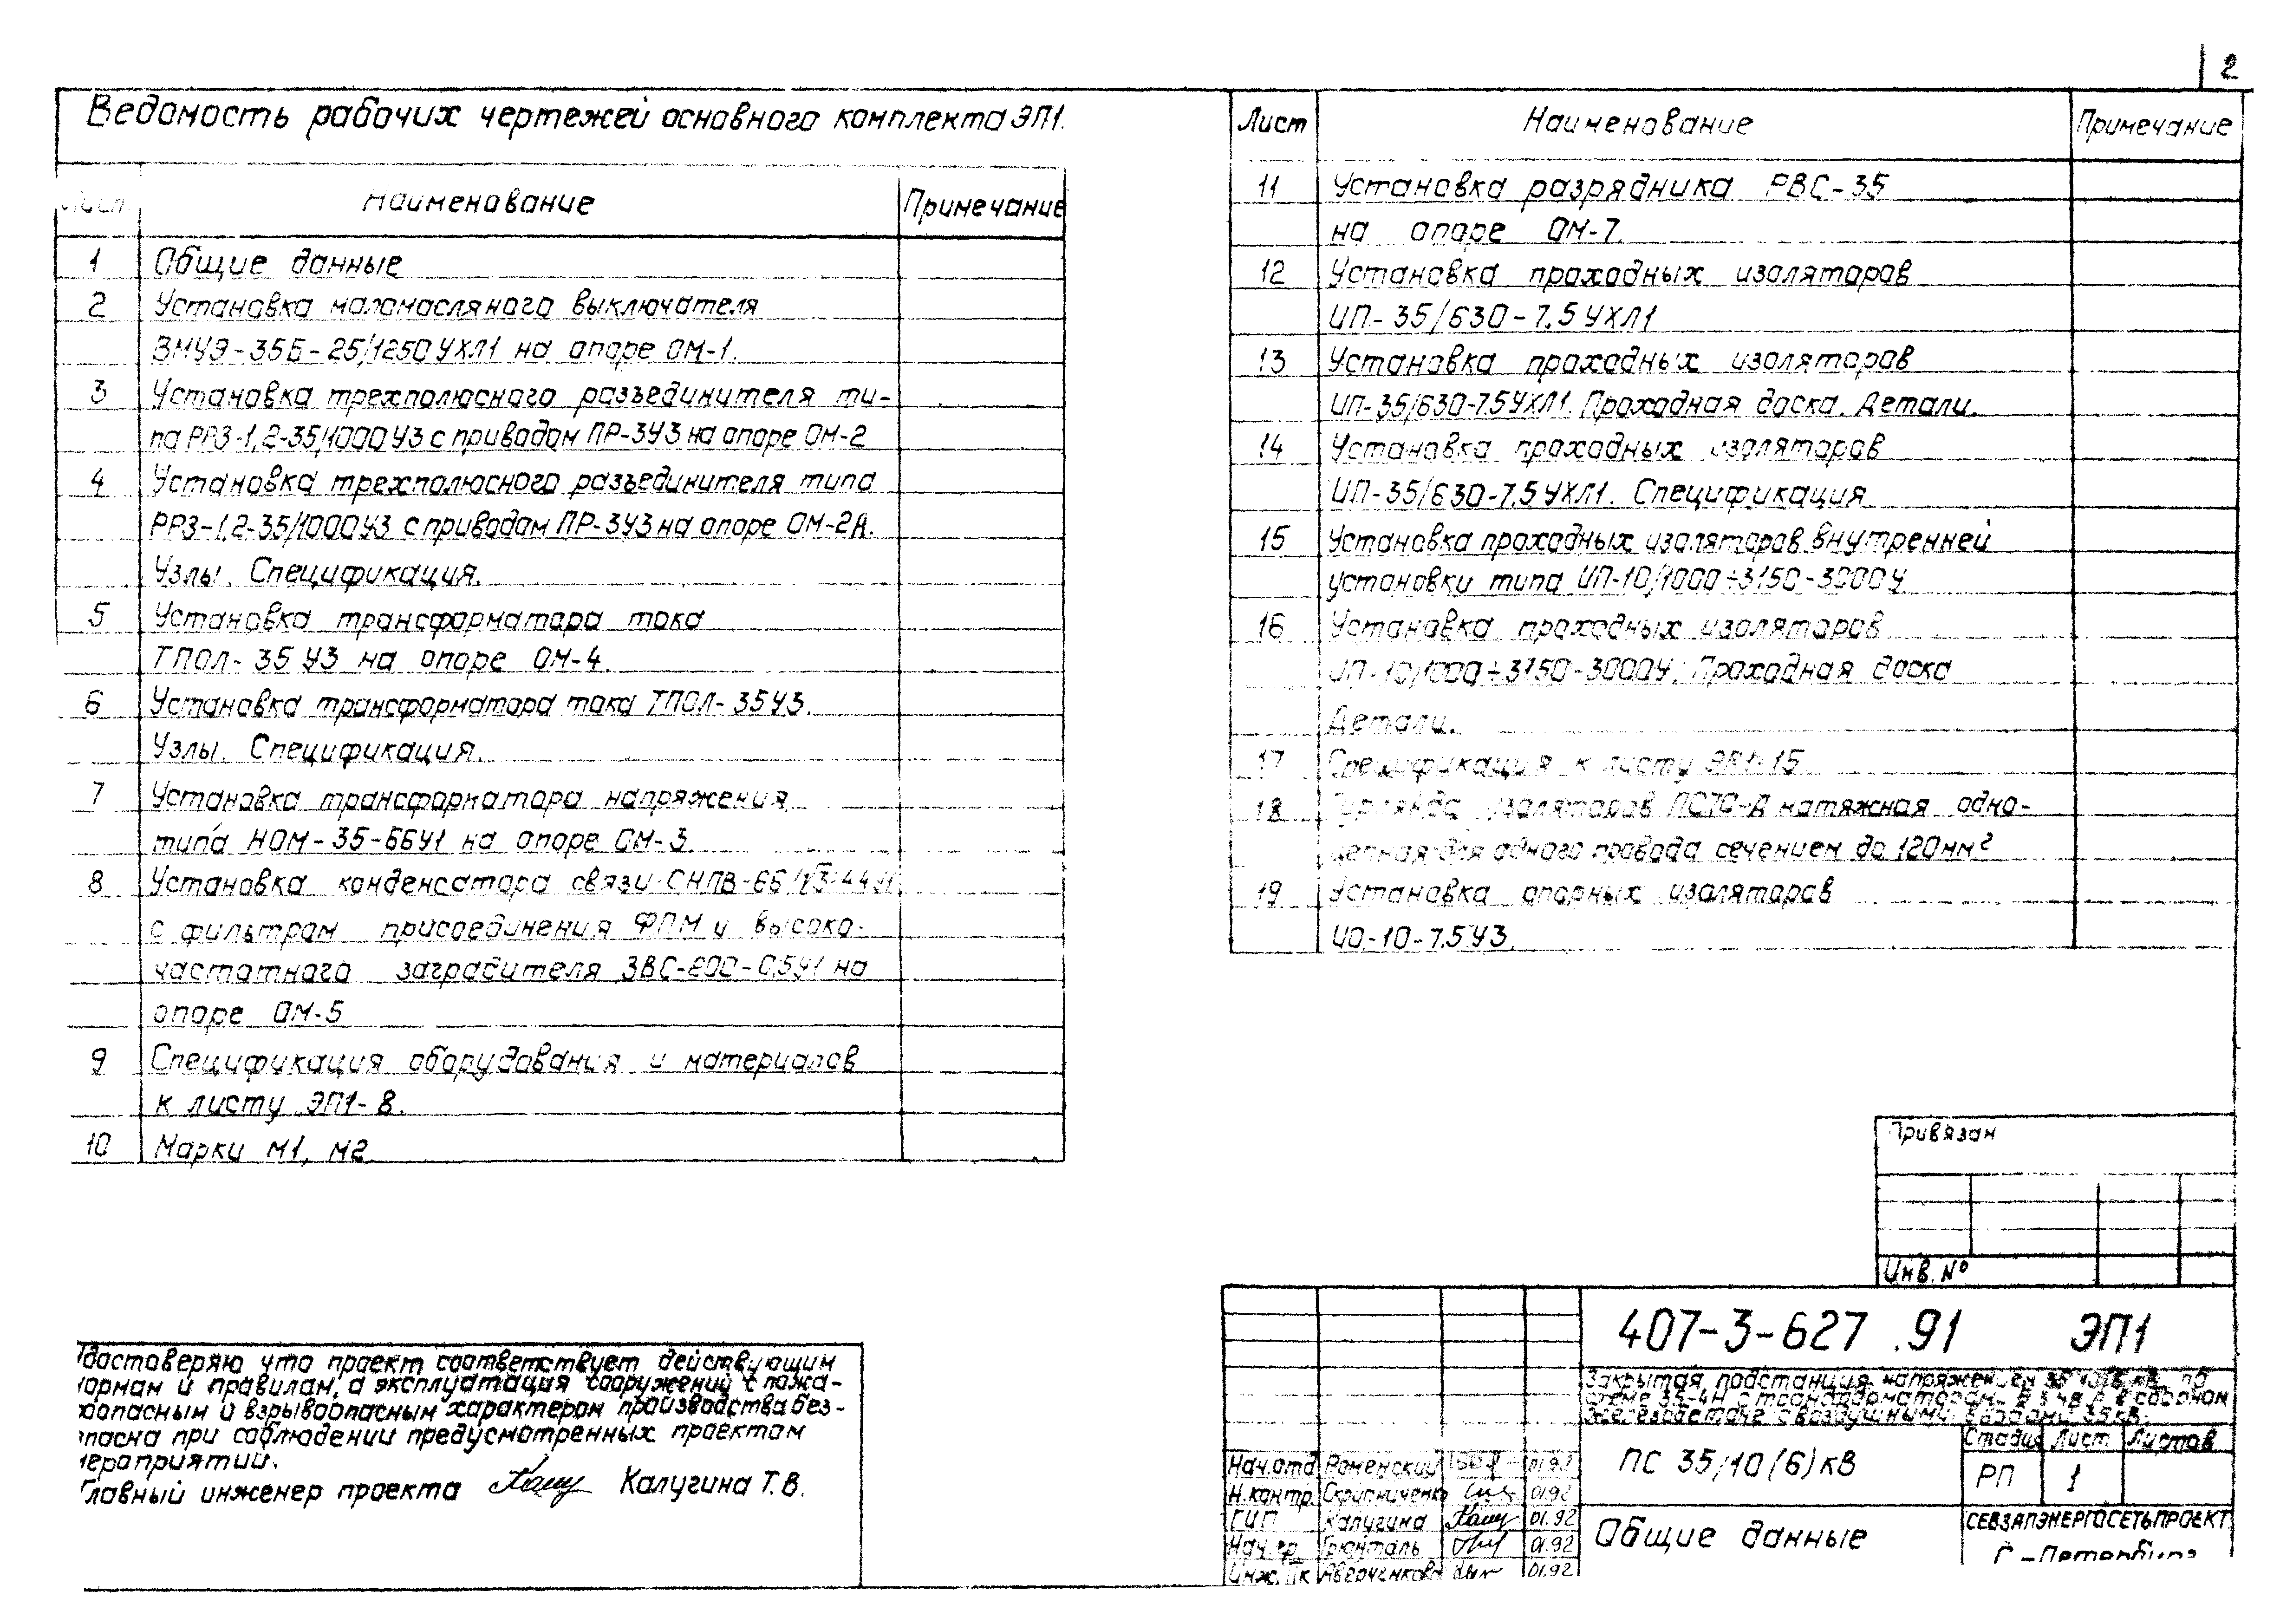 2
Ведомость рабочих чертежей основного комплекта ЭП1.
Наименование Примечание
1 Общие данные
2 Установка маломасляного выключателя
ВМУЭ-35Б-25/1250УХЛ1 на опоре ОМ-1.
3 Установка трехполюсного разъединителя ти-
па РРЗ-1,2-35/1000У3 с приводом ПР-3У3 на опоре ОМ-2
4 Установка трехполюсного разъединителя типа
РРЗ-1,2-35/1000У3 с приводом ПР-3У3 на опоре ОМ-2А.
Узлы. Спецификация.
5 Установка трансформатора тока
ТПОЛ-35 У3 на опоре ОМ-4.
6 Установка трансформатора тока ТПОЛ-35У3.
Узлы. Спецификация.
7 Установка трансформатора напряжения
типа НОМ-35-66У1 на опоре ОМ-3.
8 Установка конденсатора связи
с фильтром присоединения ФПМ и высоко-
частотного заградителя на
опоре ОМ-5
9 Спецификация оборудования и материалов
к листу ЭП1-8.
10 Марки М1, М2
Лист Наименование Примечание
11 Установка разрядника РВС-35
на опоре ОМ-7.
12 Установка проходных изоляторов
ИП-35/630-7.5УХЛ1
13 Установка проходных изоляторов
ИП-35/630-7.5УХЛ1. Проходная доска. Детали.
14 Установка проходных изоляторов
ИП-35/630-7.5УХЛ1. Спецификация
15 Установка проходных изоляторов внутренней
установки типа ИП-10/1000÷3150-3000У
16 Установка проходных изоляторов
ИП-10/1000÷3150-3000У. Проходная доска
Детали.
17 Спецификация к листу ЭП1-15
18 Гирлянда изоляторов ПС70-Д натяжная одно-
цепная для одного провода сечением до 120мм²
19 Установка опорных изоляторов
ИО-10-7.5У3.
Привязан
Инв. №
достоверяю что проект соответствует действующим
нормам и правилам, а эксплуатация сооружений с пожа-
роопасным и взрывоопасным характером производства без-
опасна при соблюдении предусмотренных проектом
мероприятий.
Главный инженер проекта Калугина Т.В.
407-3-627 .91 ЭП1
Закрытая подстанция напряжением 35/10(6) кВ по
схеме 35-4Н с трансформаторами в сборном
железобетоне с воздушными вводами 35кВ.
Стадия Лист Листов
ПС 35/10(6)кВ
РП 1
Нач.отд Роменский 01.92
Н.контр. Скрипниченко 01.92
ГИП Калугина 01.92
Нач.гр. Грюнталь 01.92
Инж. 01.92
Общие данные
СЕВЗАПЭНЕРГОСЕТЬПРОЕКТ
С-Петербург